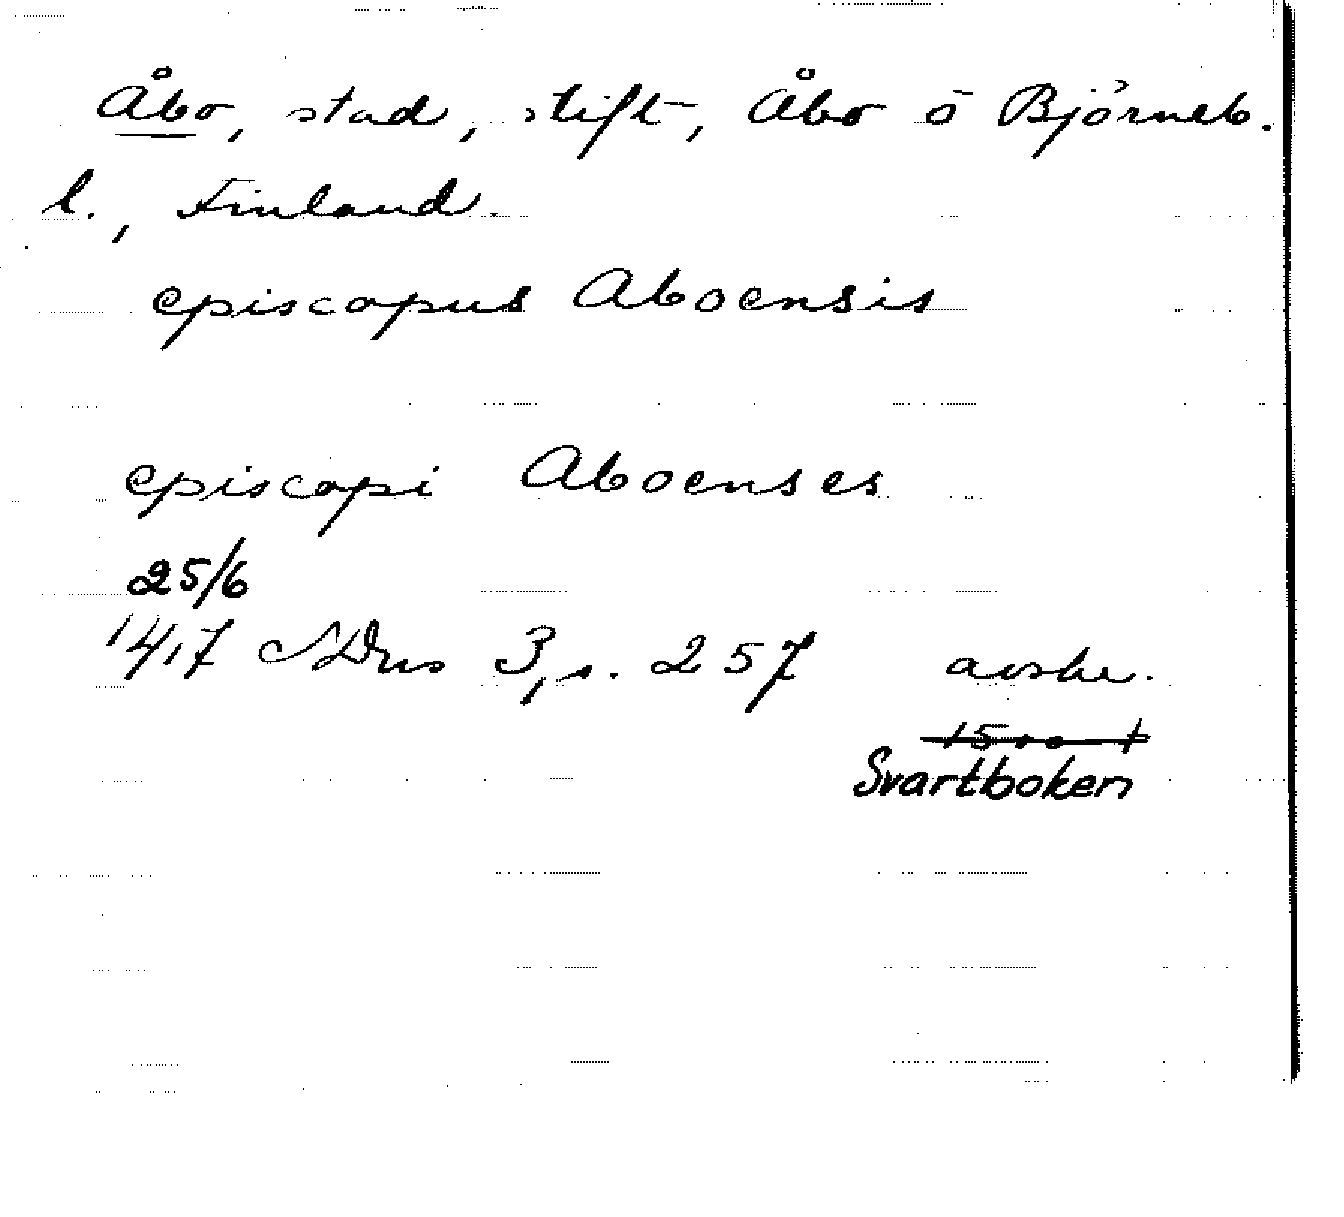 Åbo, stad, stift, Åbo o Björneb.
l., Finland.
episcopus Aboensis
episcopi Aboenses
25/6
1417 SDns 3, s. 257 avskr.
Svartboken